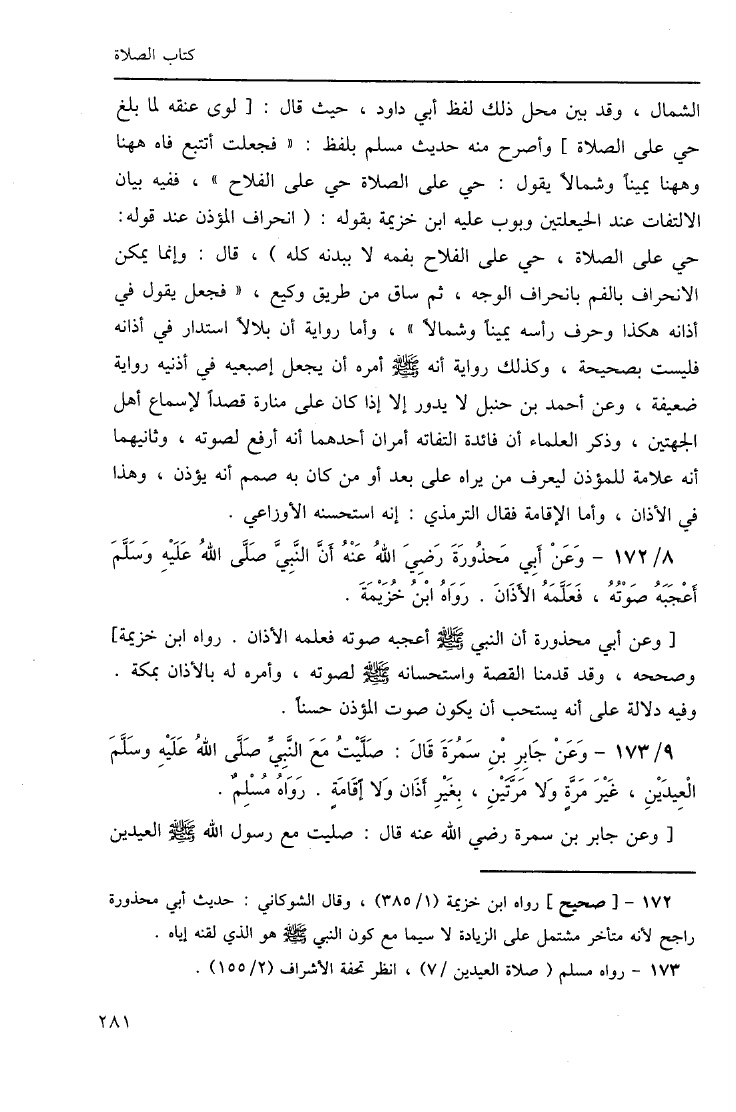 كتاب الصلاة
الشمال ، وقد بين محل ذلك لفظ أبي داود ، حيث قال : [ لوى عنقه لما بلغ
حي على الصلاة ] وأصرح منه حديث مسلم بلفظ : « فجعلت أتتبع فاه ههنا
وههنا يميناً وشمالاً يقول : حي على الصلاة حي على الفلاح » ، ففيه بيان
الالتفات عند الحيعلتين وبوب عليه ابن خزيمة بقوله : ( انحراف المؤذن عند قوله :
حي على الصلاة ، حي على الفلاح بفمه لا ببدنه كله ) ، قال : وإنما يمكن
الانحراف بالفم بانحراف الوجه ، ثم ساق من طريق وكيع ، « فجعل يقول في
أذانه هكذا وحرف رأسه يميناً وشمالاً » ، وأما رواية أن بلالاً استدار في أذانه
فليست بصحيحة ، وكذلك رواية أنه ﷺ أمره أن يجعل إصبعيه في أذنيه رواية
ضعيفة ، وعن أحمد بن حنبل لا يدور إلا إذا كان على منارة قصداً لإسماع أهل
الجهتين ، وذكر العلماء أن فائدة التفاته أمران أحدهما أنه أرفع لصوته ، وثانيهما
أنه علامة للمؤذن ليعرف من يراه على بعد أو من كان به صمم أنه يؤذن ، وهذا
في الأذان ، وأما الإقامة فقال الترمذي : إنه استحسنه الأوزاعي .
١٧٢/٨ - وَعَنْ أَبِي مَحْذُورَةَ رَضِيَ اللهُ عَنْهُ أَنَّ النَّبِيَّ صَلَّى اللهُ عَلَيْهِ وَسَلَّمَ
أَعْجَبَهُ صَوْتُهُ ، فَعَلَّمَهُ الأَذَانَ . رَوَاهُ ابْنُ خُزَيْمَةَ .
[ وعن أبي محذورة أن النبي ﷺ أعجبه صوته فعلمه الأذان . رواه ابن خزيمة]
وصححه ، وقد قدمنا القصة واستحسانه ﷺ لصوته ، وأمره له بالأذان بمكة .
وفيه دلالة على أنه يستحب أن يكون صوت المؤذن حسناً .
١٧٣/٩ - وَعَنْ جَابِرِ بْنِ سَمُرَةَ قَالَ : صَلَّيْتُ مَعَ النَّبِيِّ صَلَّى اللهُ عَلَيْهِ وسَلَّمَ
الْعِيدَيْنِ ، غَيْرَ مَرَّةٍ وَلا مَرَّتَيْنِ ، بِغَيْرِ أَذَان وَلا إِقَامَةٍ . رَوَاهُ مُسْلِمٌ .
[ وعن جابر بن سمرة رضي الله عنه قال : صليت مع رسول الله ﷺ العيدين
١٧٢ - [ صحيح ] رواه ابن خزيمة (٣٨٥/١) ، وقال الشوكاني : حديث أبي محذورة
راجح لأنه متأخر مشتمل على الزيادة لا سيما مع كون النبي ﷺ هو الذي لقنه إياه .
١٧٣ - رواه مسلم ( صلاة العيدين /٧) ، انظر تحفة الأشراف (١٥٥/٢) .
٢٨١